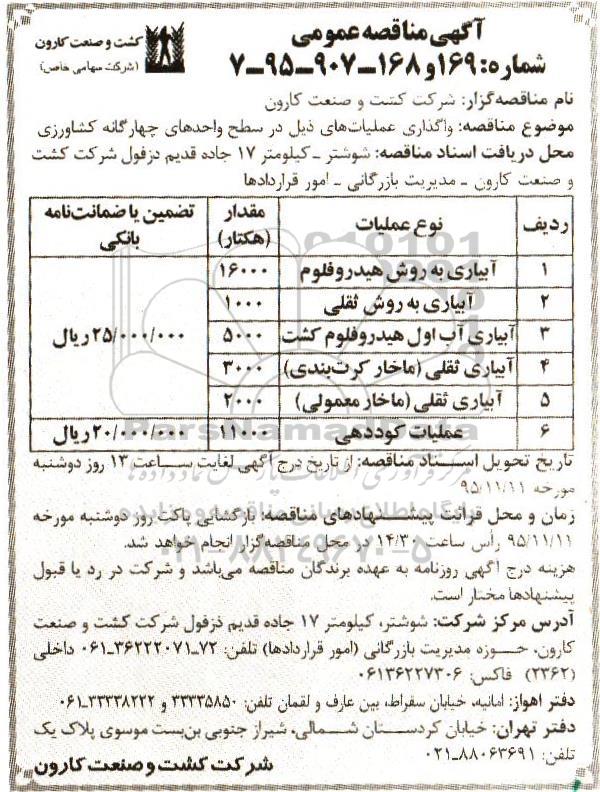 آگهی مناقصه عمومی
شماره: ۱۶۹ و ۱۶۸-۹۰۷-۹۵-۷
کشت و صنعت کارون
(شرکت سهامی خاص)
نام مناقصه‌گزار: شرکت کشت و صنعت کارون
موضوع مناقصه: واگذاری عملیات‌های ذیل در سطح واحدهای چهارگانه کشاورزی
محل دریافت اسناد مناقصه: شوشتر ـ کیلومتر ۱۷ جاده قدیم دزفول شرکت کشت
و صنعت کارون ـ مدیریت بازرگانی ـ امور قراردادها
ردیف نوع عملیات مقدار (هکتار) تضمین یا ضمانت‌نامه بانکی
۱ آبیاری به روش هیدروفلوم ۱۶۰۰۰
۲ آبیاری به روش ثقلی ۱۰۰۰
۳ آبیاری آب اول هیدروفلوم کشت ۵۰۰۰ ۲۵/۰۰۰/۰۰۰ ریال
۴ آبیاری ثقلی (ماخار کرت‌بندی) ۳۰۰۰
۵ آبیاری ثقلی (ماخار معمولی) ۲۰۰۰
۶ عملیات کوددهی ۱۱۰۰۰ ۲۰/۰۰۰/۰۰۰ ریال
تاریخ تحویل اسناد مناقصه: از تاریخ درج آگهی لغایت ساعت ۱۳ روز دوشنبه
مورخه ۹۵/۱۱/۱۱
زمان و محل قرائت پیشنهادهای مناقصه: بازگشایی پاکت روز دوشنبه مورخه
۹۵/۱۱/۱۱ رأس ساعت ۱۴/۳۰ در محل مناقصه‌گزار انجام خواهد شد.
هزینه درج آگهی روزنامه به عهده برندگان مناقصه می‌باشد و شرکت در رد یا قبول
پیشنهادها مختار است.
آدرس مرکز شرکت: شوشتر، کیلومتر ۱۷ جاده قدیم دزفول شرکت کشت و صنعت
کارون. حوزه مدیریت بازرگانی (امور قراردادها) تلفن: ۷۲-۳۶۲۲۲۰۷۱-۰۶۱ داخلی
(۲۳۶۲) فاکس: ۰۶۱۳۶۲۲۷۳۰۶
دفتر اهواز: امانیه، خیابان سقراط، بین عارف و لقمان تلفن: ۳۳۳۳۵۸۵۰ و ۳۳۳۳۸۲۲۲-۰۶۱
دفتر تهران: خیابان کردستان شمالی. شیراز جنوبی بن‌بست موسوی پلاک یک
تلفن: ۸۸۰۶۳۶۹۱-۰۲۱
شرکت کشت و صنعت کارون
ParsNamadData
۰۲۱-۸۸۳۴۹۶۷۰-۵